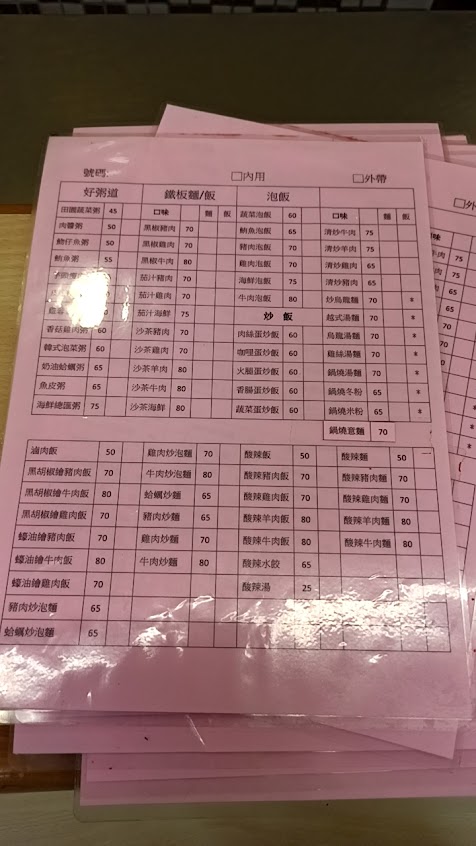 號碼:
□內用 □外帶
好粥道 鐵板麵/飯 泡飯
田園蔬菜粥 45 口味 麵 飯 蔬菜泡飯 60 口味 麵 飯
肉醬粥 50 黑椒豬肉 70 鮪魚泡飯 65 清炒牛肉 75
魩仔魚粥 50 黑椒雞肉 70 豬肉泡飯 70 清炒羊肉 75
鮪魚粥 55 黑椒牛肉 80 雞肉泡飯 70 清炒雞肉 65
茄汁豬肉 70 海鮮泡飯 75 清炒豬肉 65
茄汁雞肉 70 牛肉泡飯 80 炒烏龍麵 70 *
茄汁海鮮 70 炒 飯 越式湯麵 70 *
香菇雞肉粥 60 沙茶豬肉 70 肉絲蛋炒飯 60 烏龍湯麵 70 *
韓式泡菜粥 60 沙茶雞肉 70 咖哩蛋炒飯 60 雞絲湯麵 70 *
奶油蛤蠣粥 65 沙茶羊肉 80 火腿蛋炒飯 60 鍋燒湯麵 70 *
魚皮粥 65 沙茶牛肉 80 香腸蛋炒飯 60 鍋燒冬粉 65 *
海鮮總匯粥 75 沙茶海鮮 80 蔬菜蛋炒飯 60 鍋燒米粉 65 *
鍋燒意麵 70
滷肉飯 50 雞肉炒泡麵 70 酸辣飯 50 酸辣麵 50
黑胡椒燴豬肉飯 70 牛肉炒泡麵 80 酸辣豬肉飯 70 酸辣豬肉麵 70
黑胡椒燴牛肉飯 80 蛤蠣炒麵 65 酸辣雞肉飯 70 酸辣雞肉麵 70
黑胡椒燴雞肉飯 70 豬肉炒麵 65 酸辣羊肉飯 80 酸辣羊肉麵 80
蠔油燴豬肉飯 70 雞肉炒麵 70 酸辣牛肉飯 80 酸辣牛肉麵 80
蠔油燴牛肉飯 80 牛肉炒麵 80 酸辣水餃 65
蠔油燴雞肉飯 70 酸辣湯 25
豬肉炒泡麵 65
蛤蠣炒泡麵 65